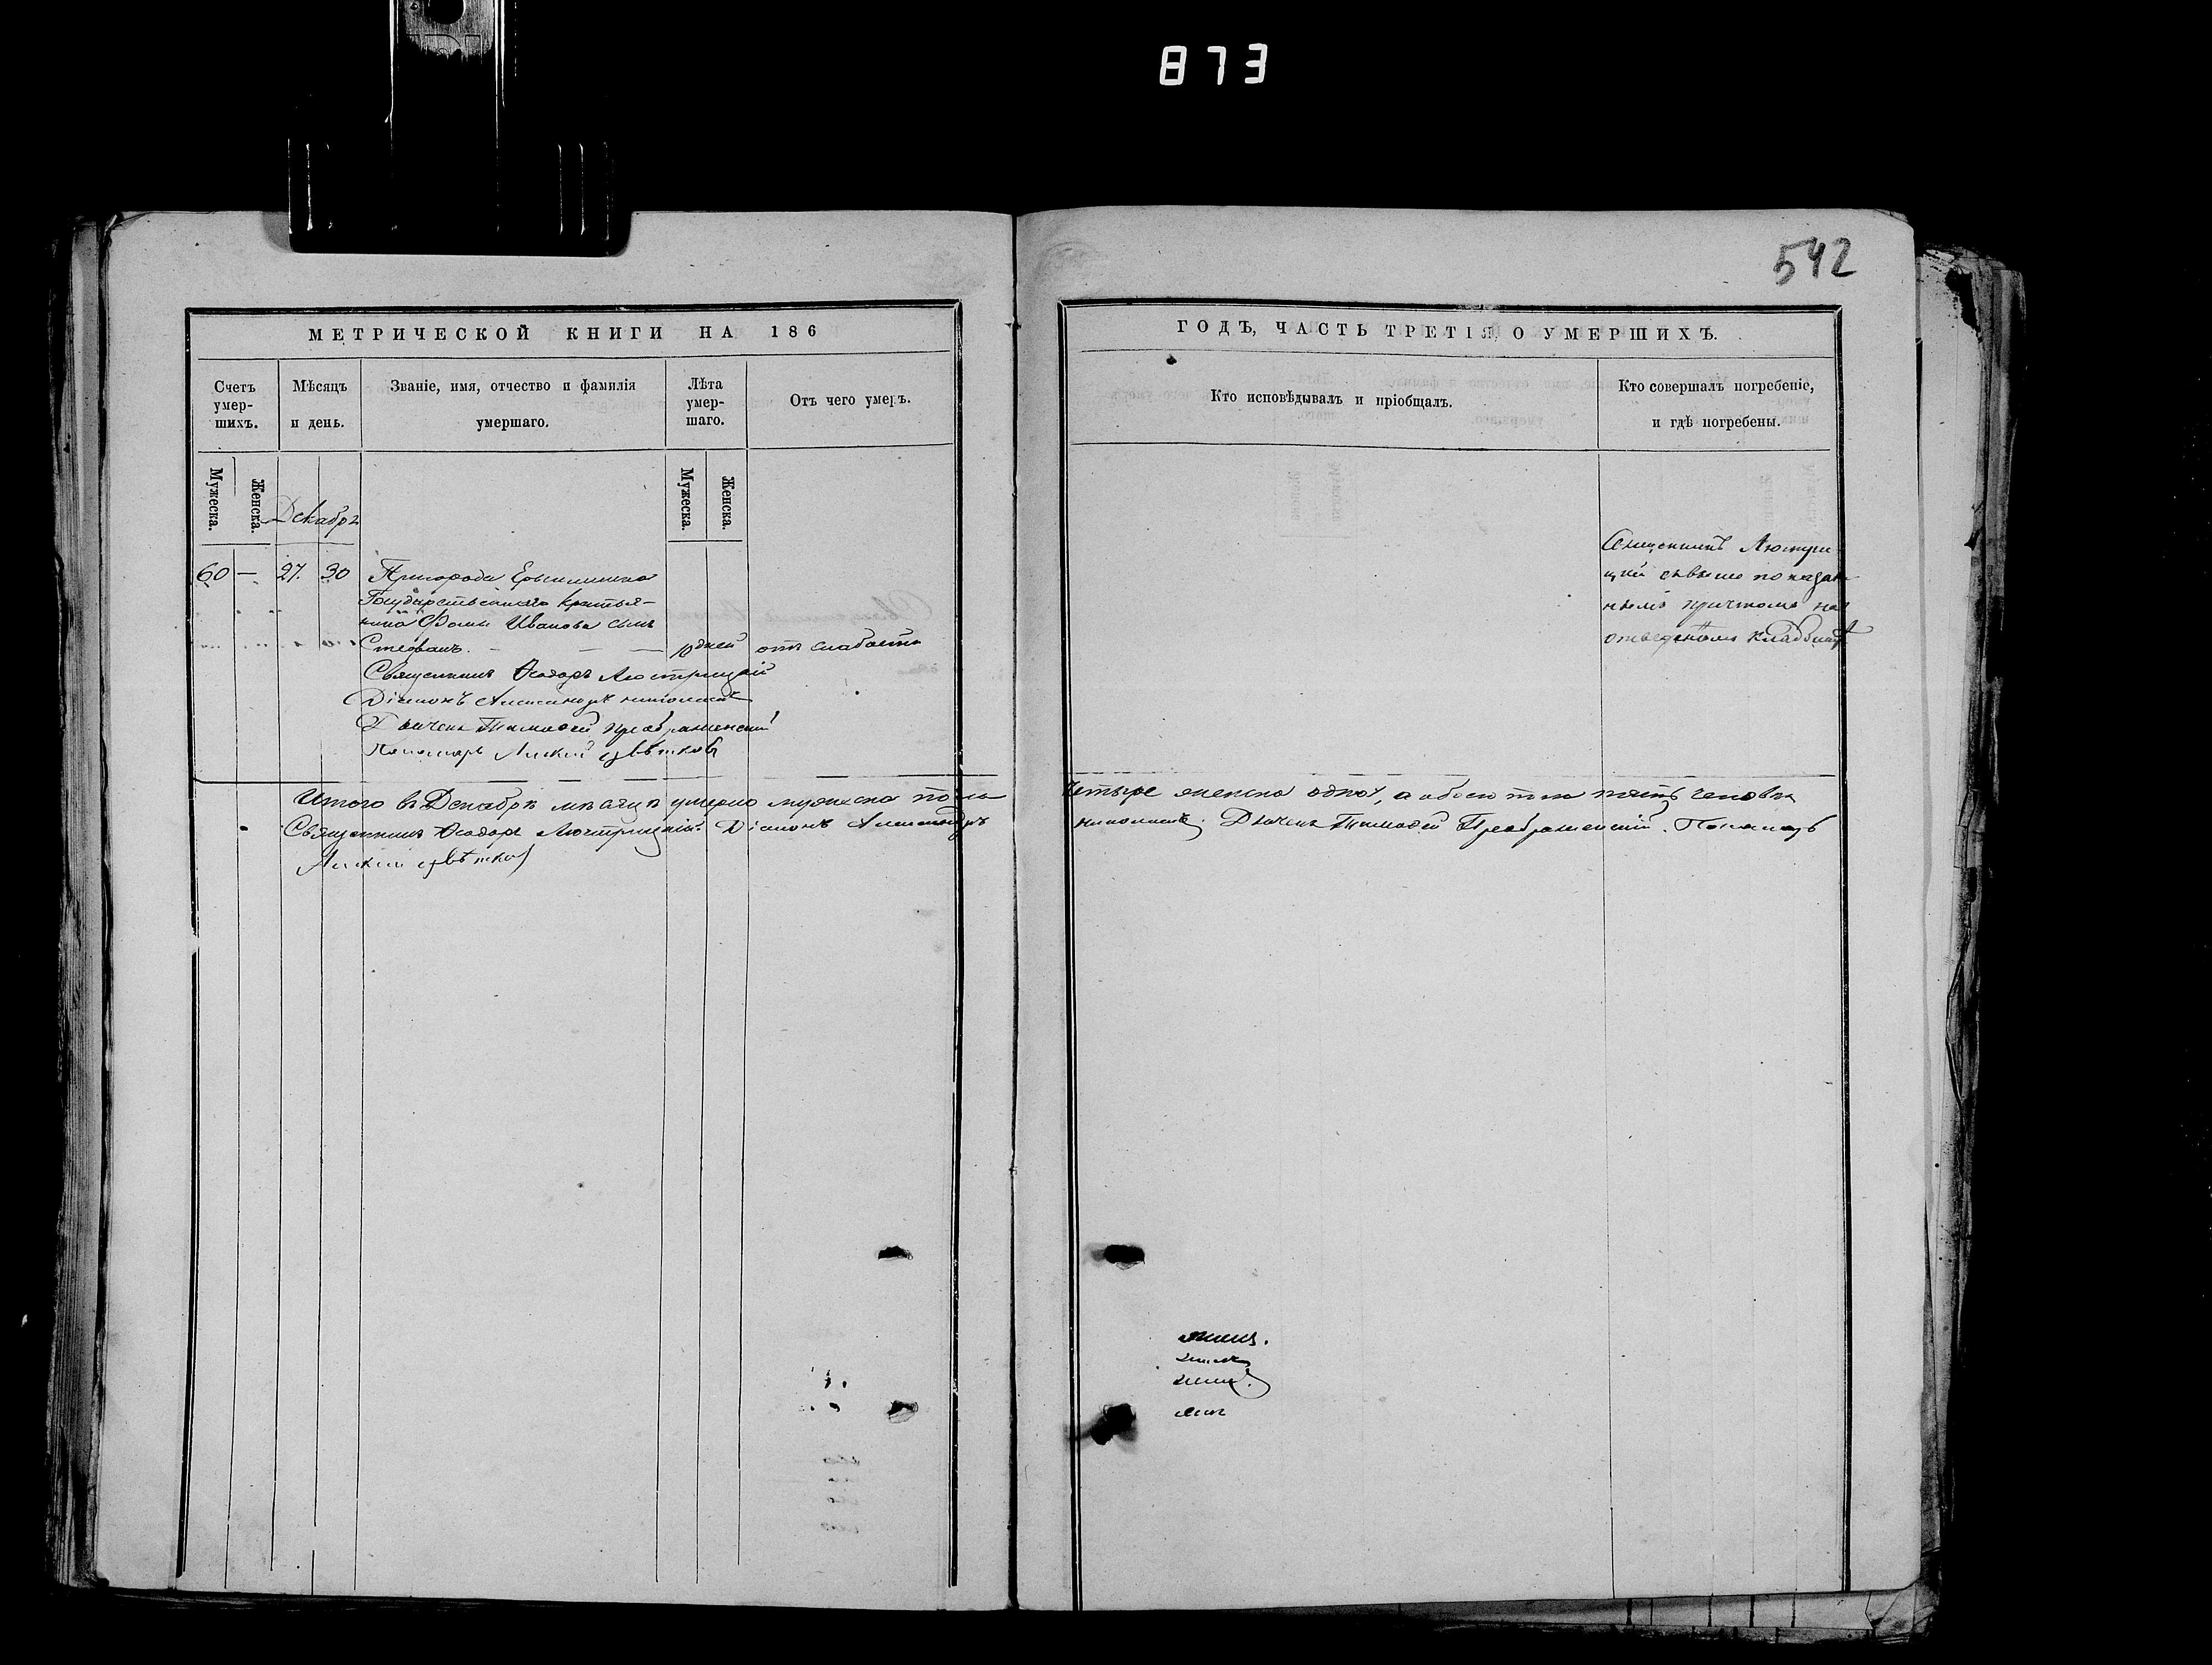 873
542
МЕТРИЧЕСКОЙ КНИГИ НА 186
ГОДЪ, ЧАСТЬ ТРЕТІЯ, О УМЕРШИХЪ.
Счетъ умер-шихъ.
Мѣсяцъ и день.
Званіе, имя, отчество и фамилія умершаго.
Лѣта умер-шаго.
Отъ чего умеръ.
Кто исповѣдывалъ и пріобщалъ.
Кто совершалъ погребеніе, и гдѣ погребены.
Мужеска.
Женска.
Мужеска.
Женска.
Декабрь
60 — 27. 30 Пригорода
Государственнаго крестья-
нина Фомы Иванова сынъ
Стефанъ. — — — 10 дней отъ слабости
Священникъ
показан-
нымъ причтомъ на
отведенномъ кладбищѣ
Священникъ Ѳеодоръ
Діаконъ Александръ
Дьячекъ Тимофей Преображенскій
Пономарь Цвѣтковъ
Итого въ Декабрѣ мѣсяцѣ умерло мужеска пола
четыре женска одна, а обоего пола пять человѣкъ
Священникъ Ѳеодоръ Діаконъ Александръ
Дьячекъ Тимофей Преображенскій. Пономарь
Цвѣтковъ